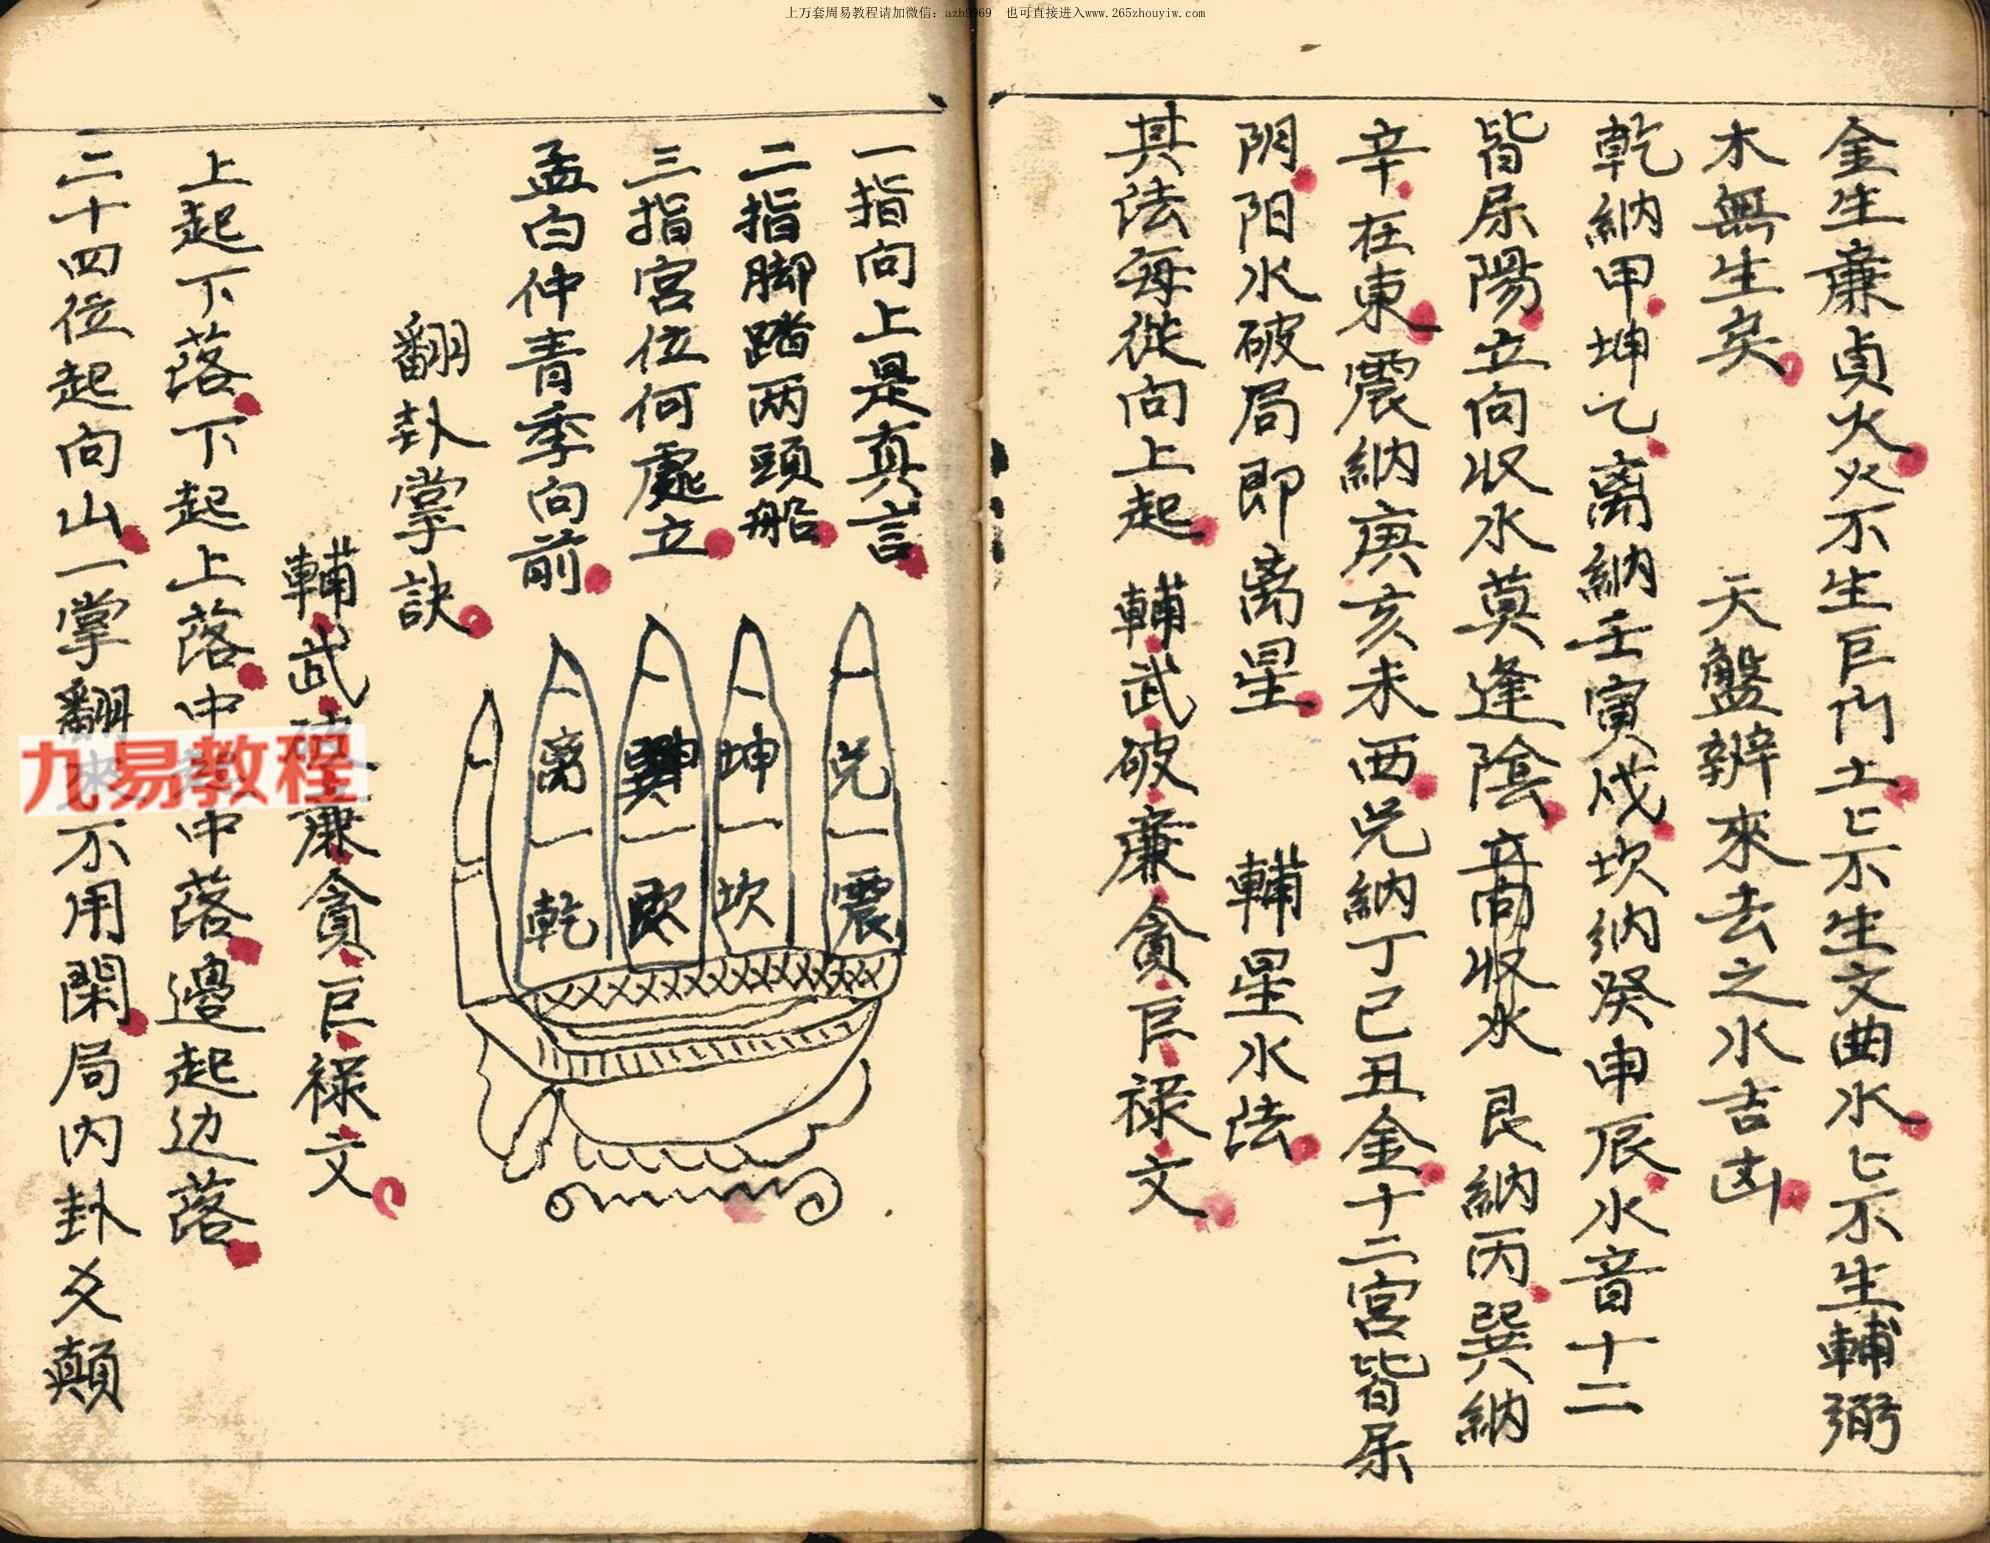 上万套周易教程请加微信：azh9969　也可直接进入www.265zhouyiw.com
金生廉貞火火不生巨門土匕不生文曲水匕不生輔弼
木無生矣　天盤辨來去之水吉凶
乾納甲坤乙离納壬寅戌坎納癸申辰水音十二
皆屬陽立向收水莫逢陰音向收水艮納丙巽納
辛在東震納庚亥未西兑納丁巳丑金十二宮皆屬
阴阳水破局即离星　輔星水法
其法每從向上起　輔武破廉貪巨禄文
一指向上是真言
二指脚踏两頭船
三指宮位何處立
孟白仲青季向前
翻卦掌訣
輔武廉貪巨禄文
上起下落下起上落中中落邊起边落
二十四位起向山一掌翻不用閑局内卦爻顛
兑一震
坤一坎
巽一
离一乾
九易教程